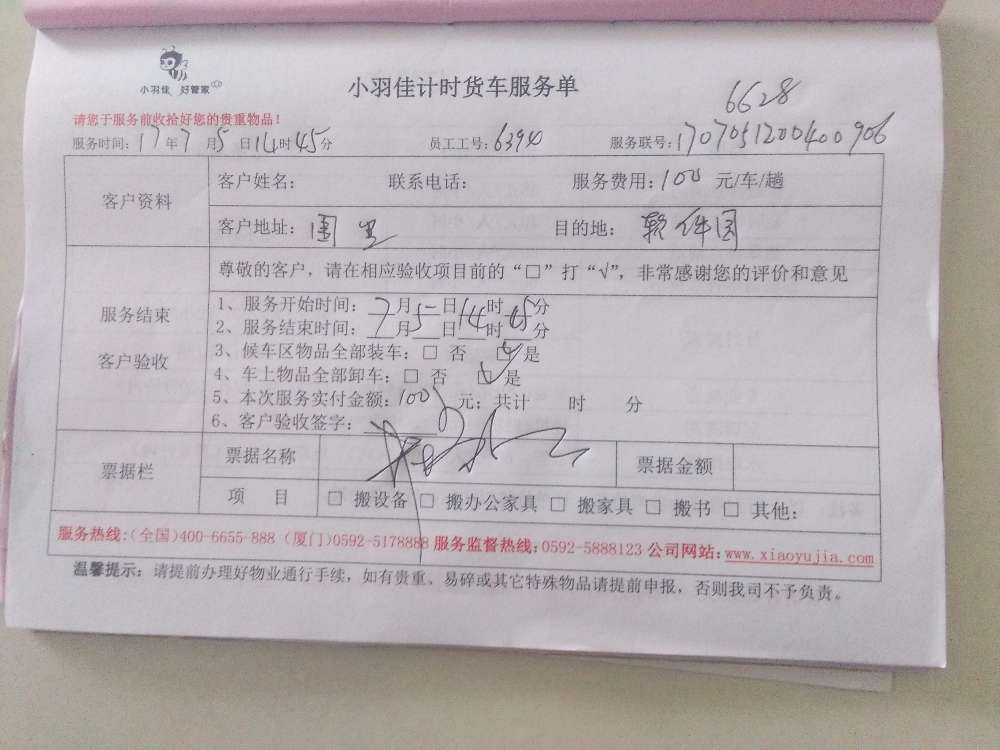 小羽佳 好管家
小羽佳计时货车服务单
6628
请您于服务前收拾好您的贵重物品！
服务时间：17年7月5日14时45分 员工工号：6394 服务联号：1707051200400906
客户资料
客户姓名： 联系电话： 服务费用：100 元/车/趟
客户地址：围里 目的地：软件园
服务结束
客户验收
尊敬的客户，请在相应验收项目前的“□”打“√”，非常感谢您的评价和意见
1、服务开始时间：7月5日14时45分
2、服务结束时间：月日时分
3、候车区物品全部装车：□ 否 □ 是
4、车上物品全部卸车：□ 否 □ 是
5、本次服务实付金额：100 元；共计 时 分
6、客户验收签字：
票据栏
票据名称 票据金额
项 目 □ 搬设备 □ 搬办公家具 □ 搬家具 □ 搬书 □ 其他：
服务热线：（全国）400-6655-888（厦门）0592-5178888 服务监督热线：0592-5888123 公司网站：www.xiaoyujia.com
温馨提示：请提前办理好物业通行手续，如有贵重、易碎或其它特殊物品请提前申报，否则我司不予负责。